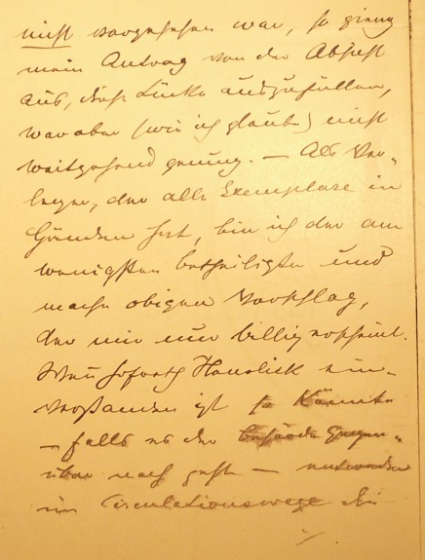 nicht vorgesehen war, so gieng
mein Antrag von der Absicht
aus, diese Lücke auszufüllen,
war aber (wie ich glaube) nicht
weitgehend genug. — Als Ver-
leger, der alle Exemplare in
Händen hat, bin ich der am
wenigsten betheiligte und
mache obigen Vorschlag,
der mir nur billig erscheint.
Wenn Hofrath Hanslick ein-
verstanden ist so könnte
— falls es der Behörde gegen-
über noch geht — entweder
im Circulationswege die